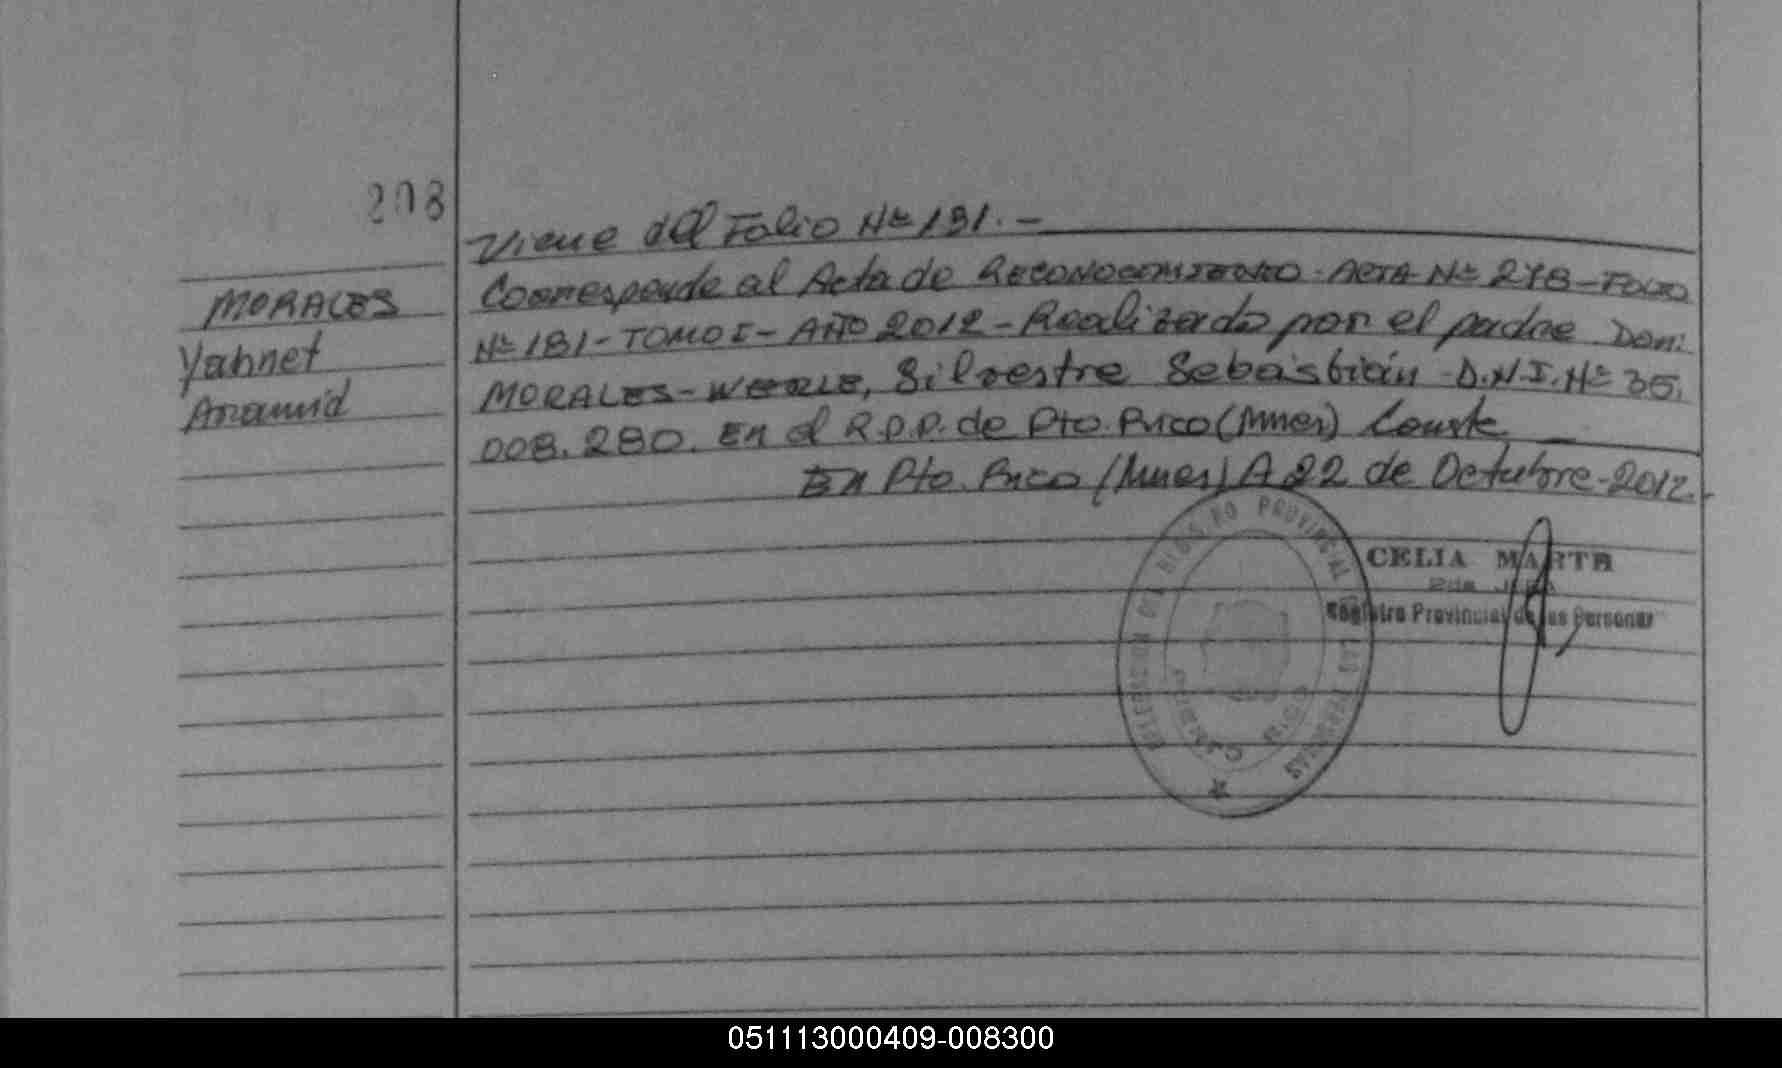 208
Viene del Folio Nº 181.-
Corresponde al Acta de RECONOCIMIENTO - ACTA Nº 278 - FOLIO
Nº 181 - TOMO I - AÑO 2012 - Realizado por el padre Don:
MORALES - , Silvestre Sebastián - D.N.I. Nº 35.
008.280. En el R.P.P. de Pto. Rico (Mnes) Conste
En Pto. Rico (Mnes) A 22 de Octubre - 2012.
MORALES
Yahnet
PROVINCIAL
LAS PERSONAS
CELIA MARTA
Registro Provincial de las Personas
051113000409-008300